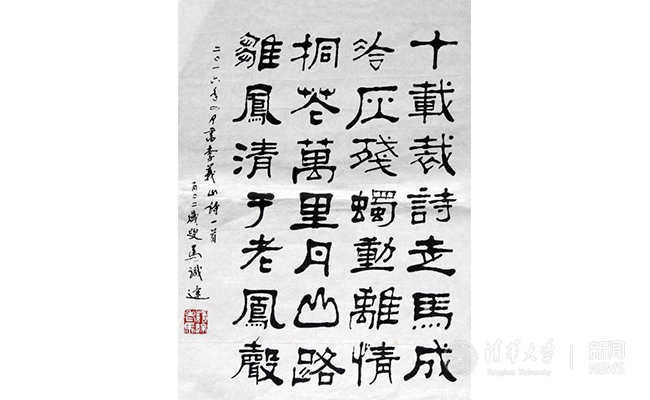 十載裁詩走馬成
冷灰殘燭動離情
桐花萬里丹山路
雛鳳清于老鳳聲
二〇一六年四月書李義山詩一首
百〇二歲叟馬識途
清華大学
Tsinghua University
新闻
NEWS